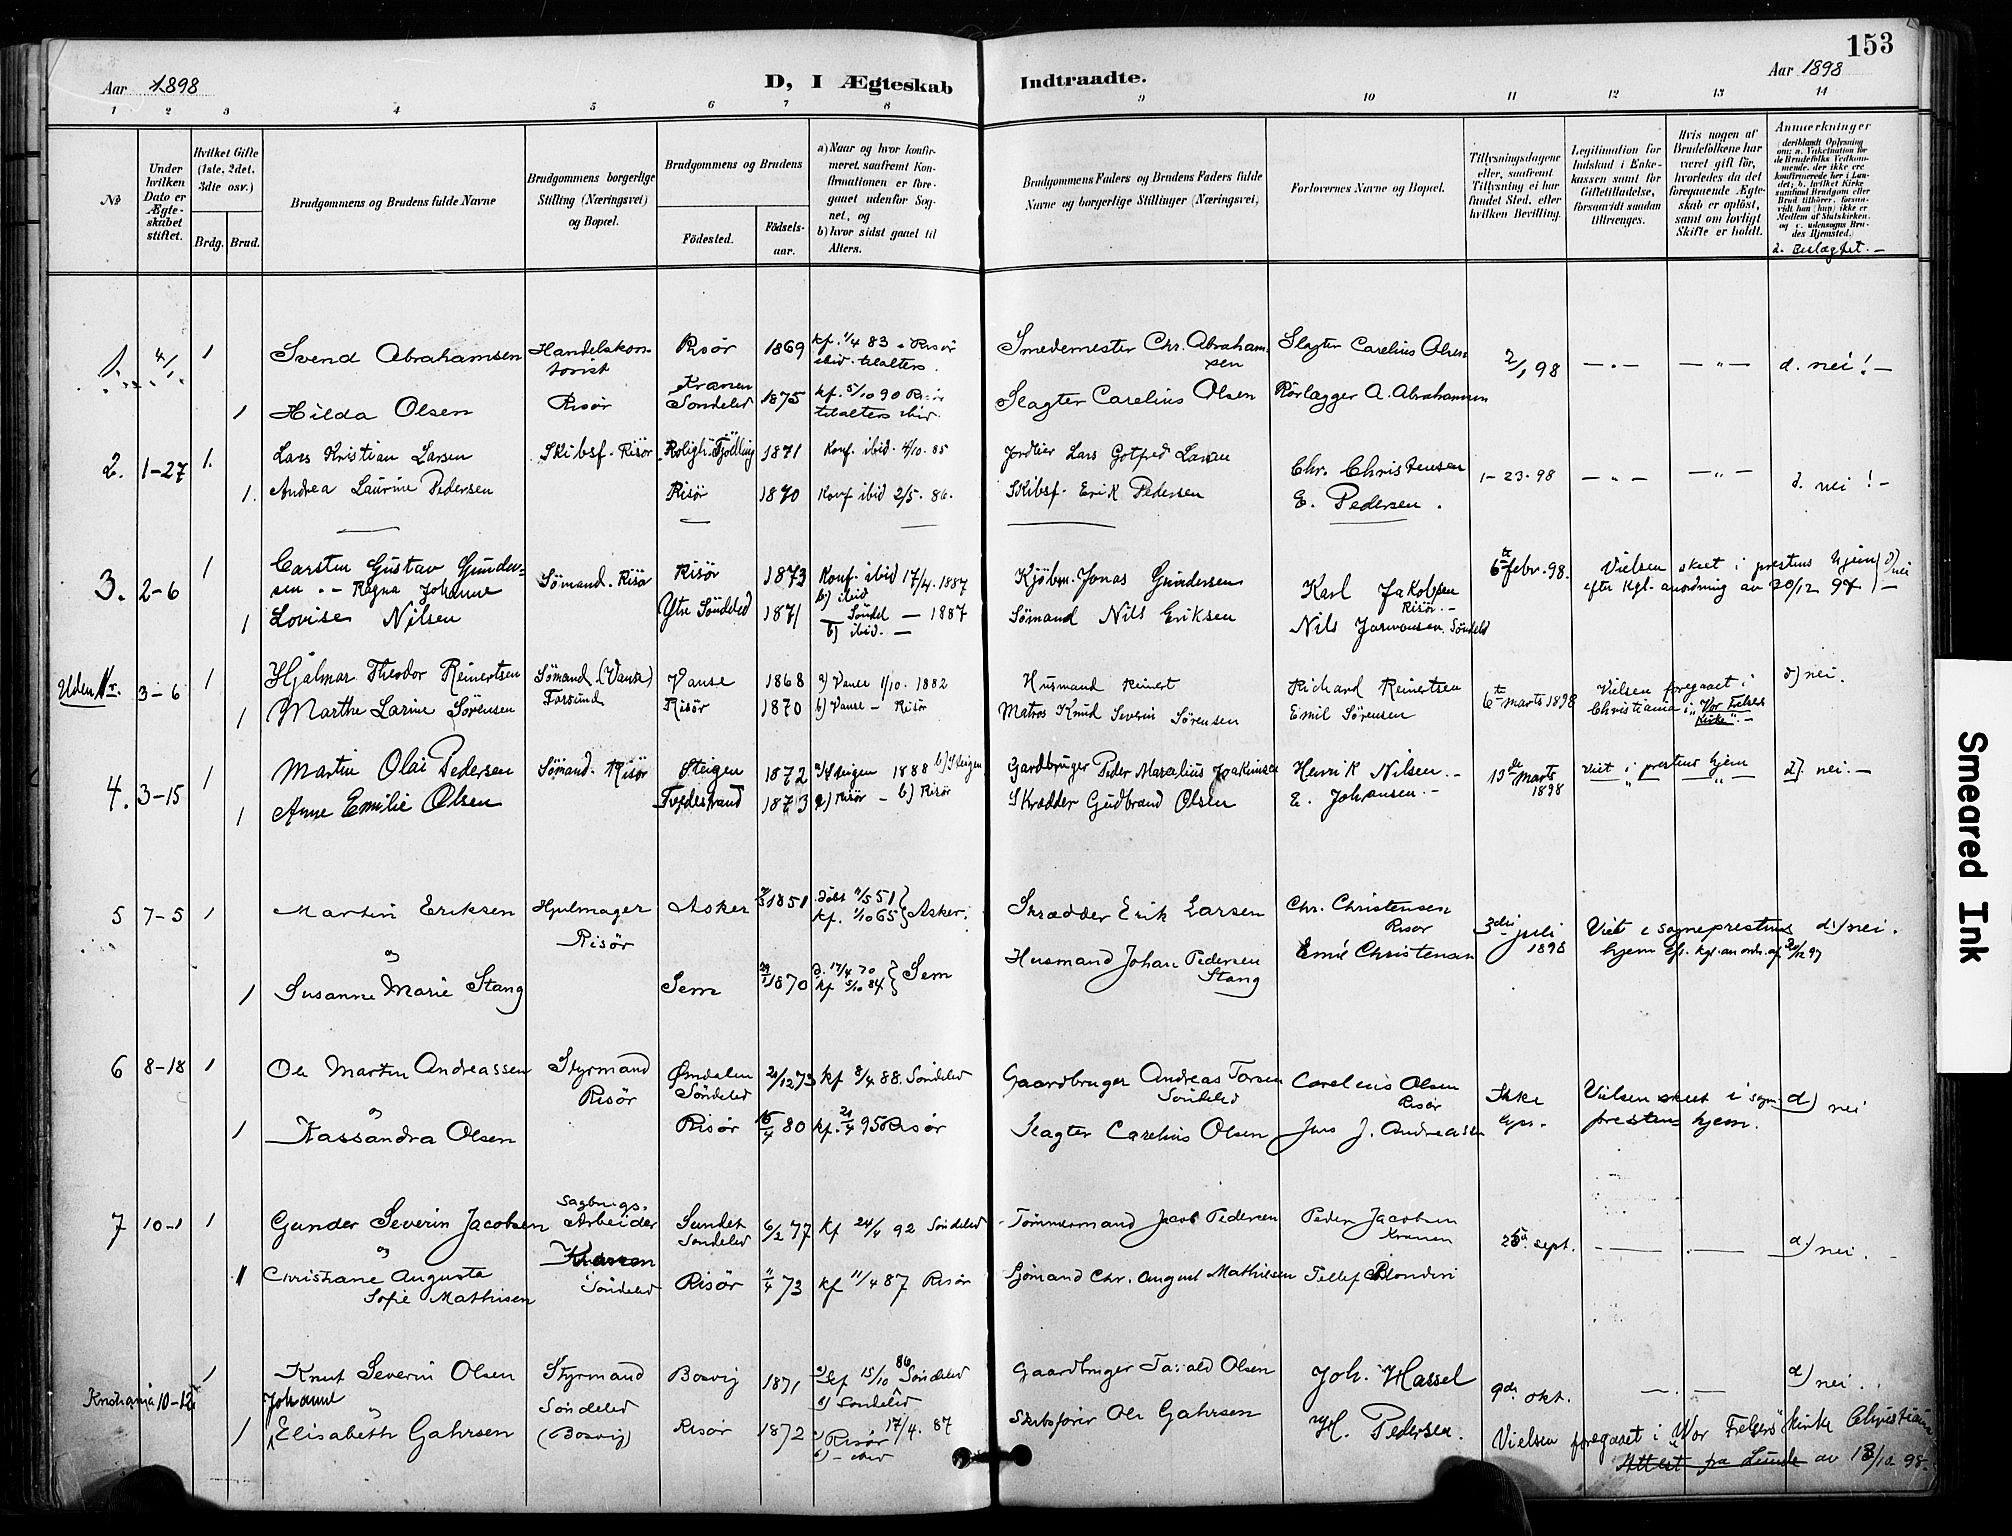 153
Aar 1898
D, I Ægteskab Indtraadte.
Aar 1898
1 2 3 4 5 6 7 8 9 10 11 12 13 14
No
Under hvilken Dato er Ægteskabet stiftet.
Hvilket Gifte (1ste, 2det, 3dte osv.)
Brdg. Brud.
Brudgommens og Brudens fulde Navne
Brudgommens borgerlige Stilling (Næringsvei) og Bopæl.
Brudgommens og Brudens
Fødested.
Fødselsaar.
a) Naar og hvor konfirmeret, saafremt Konfirmationen er foregaaet udenfor Sognet, og
b) hvor sidst gaaet til Alters.
Brudgommens Faders og Brudens Faders fulde Navne og borgerlige Stillinger (Næringsvei),
Forlovernes Navne og Bopæl.
Tillysningsdagene eller, saafremt Tillysning ei har fundet Sted, efter hvilken Bevilling.
Legitimation for Indskud i Enkekassen samt for Giftetilladelse, forsaavidt saadan tiltrænges.
Hvis nogen af Brudefolkene har været gift før, hvorledes da det foregaaende Ægteskab er opløst, samt om lovligt Skifte er holdt.
Anmerkninger
(deriblandt Oplysning om: a. Vakcination for de Brudefolks Vedkommende, der ikke ere konfirmerede her i Landet; b. hvilket Kirkesamfund Brudgom eller Brud tilhører, forsaavidt han (hun) ikke er Medlem af Statskirken, og c. udensogns Brudes Hjemsted.)
d. Beslægtet. —
1. 4/1. 1 Svend Abrahamsen Handelskontorist Risør 1869 kf. 1/4 83 i Risør ibid. tilalters. Smedemester Chr. Abrahamsen Slagter Carelius Olsen 2/1 98 — . — — " — d. nei! —
1 Hilda Olsen Risør Kranen Söndeled 1875 kf. 5/10 90 Risör tilalters ibid. Slagter Carelius Olsen Rörlægger A. Abrahamsen
2. 1-27 1. Lars Kristian Larsen Skibsf. Risör Fjölling 1871 Konf. ibid. 4/10. 85 Lars Gotfred Larsen Chr. Christensen 1-23-98 — " — — " — d. nei! —
1. Andrea Laurine Pedersen Risör 1870 Konf ibid 2/5. 86. Skibsf. Erik Pedersen E. Pedersen.
3. 2-6 1 Carsten Gustav Gundersen Sömand. Risör Risör 1873 Konf. ibid 17/4. 1887 b) ibid Kjöbm. Jonas Gundersen Karl Jakobsen Risör. 6te febr. 98. Vielsen skeet i prestens hjem efter kgl. anordning av 30/12 97 d) nei
1 Ragna Johanne Lovise Nilsen Ytre Söndeled 1871 Söndel — 1887 b) ibid. — Sömand Nils Eriksen Nils Söndeled
Uden Nr. 3-6 1 Hjalmar Theodor Reinertsen Sömand (Vanse) Farsund Vanse 1868 a) Vanse 1/10. 1882 Husmand Reinert Richard Reinertsen 6te marts 1898 Vielsen foregaaet i Christiania i "Vor Frelsers Kirke". — d) nei.
1 Marthe Larine Sörensen Risör 1870 b) Vanse — Risör Matros Knud Severin Sörensen Emil Sörensen
4. 3-15 1 Martin Olai Pedersen Sömand. Risör Steigen 1872 a) Steigen 1888 b) Steigen Gardbruger Peder Marcelius Joakimsen Henrik Nilsen. — 13de Marts 1898 Viet i prestens hjem d). nei. —
1 Anne Emilie Olsen Tvedestrand 1873 a) Risör — b) Risör Skrædder Gudbrand Olsen E. Johansen. —
5 7-5 1 Martin Eriksen Hjulmager Risör Asker 1851 döbt 11/5 51 kf. 1/10 65 Asker. Skrædder Erik Larsen Chr. Christensen Risör 3die juli 1898 Viet i sogneprestens hjem ef. kgl. anordn. af 30/12 97 d.) nei.
og
1 Susanne Marie Stang Sem 1870 d. 17/4 70 kf 5/10 84 Sem Husmand Johan Pedersen Stang Emil Christensen
6 8-18 1 Ole Martin Andreassen Styrmand Risör Ømdalen Söndeled 21/12 73 kf 8/4 88. Söndeled Gaardbruger Andreas Torsen Söndeled Carelius Olsen Risör Ikke lyst. Vielsen skeet i sogneprestens hjem. d) nei
og
1 Kassandra Olsen Risör 16/4 80 kf. 21/4 95 Risör Slagter Carelius Olsen Jens J. Andreasen
7 10-1 1 Gunder Severin Jacobsen Sagbrugs. Arbeider Kranen Söndeled Sundet Söndeled 6/2 77 kf 24/4 92 Söndeled Tömmermand Jacob Pedersen Peder Jacobsen Kranen 25de sept. d.) nei.
og
1 Christiane Augusta Sofie Mathisen Risör 11/4 73 kf 11/4 87 Risör Sjömand Chr. August Mathisen Tellef Blondin
Kristiania 10-12 1 Knut Severin Olsen Styrmand Söndeled (Bosvig) Bosvig 1871 a) kf 15/10 86 Söndeled b) Söndeled Gaardbruger Tarald Olsen Joh. Hassel 9de okt. d) nei.
og
1 Johanne Elisabeth Gahrsen Risör 1872 a) Risör 17/4. 87 b) — ibid Skibsförer Ole Gahrsen H. Pedersen. Vielsen foregaaet i "Vor Frelsers" Kirke Christiania
Attest fra Lunde av 13/12 98.
Smeared Ink